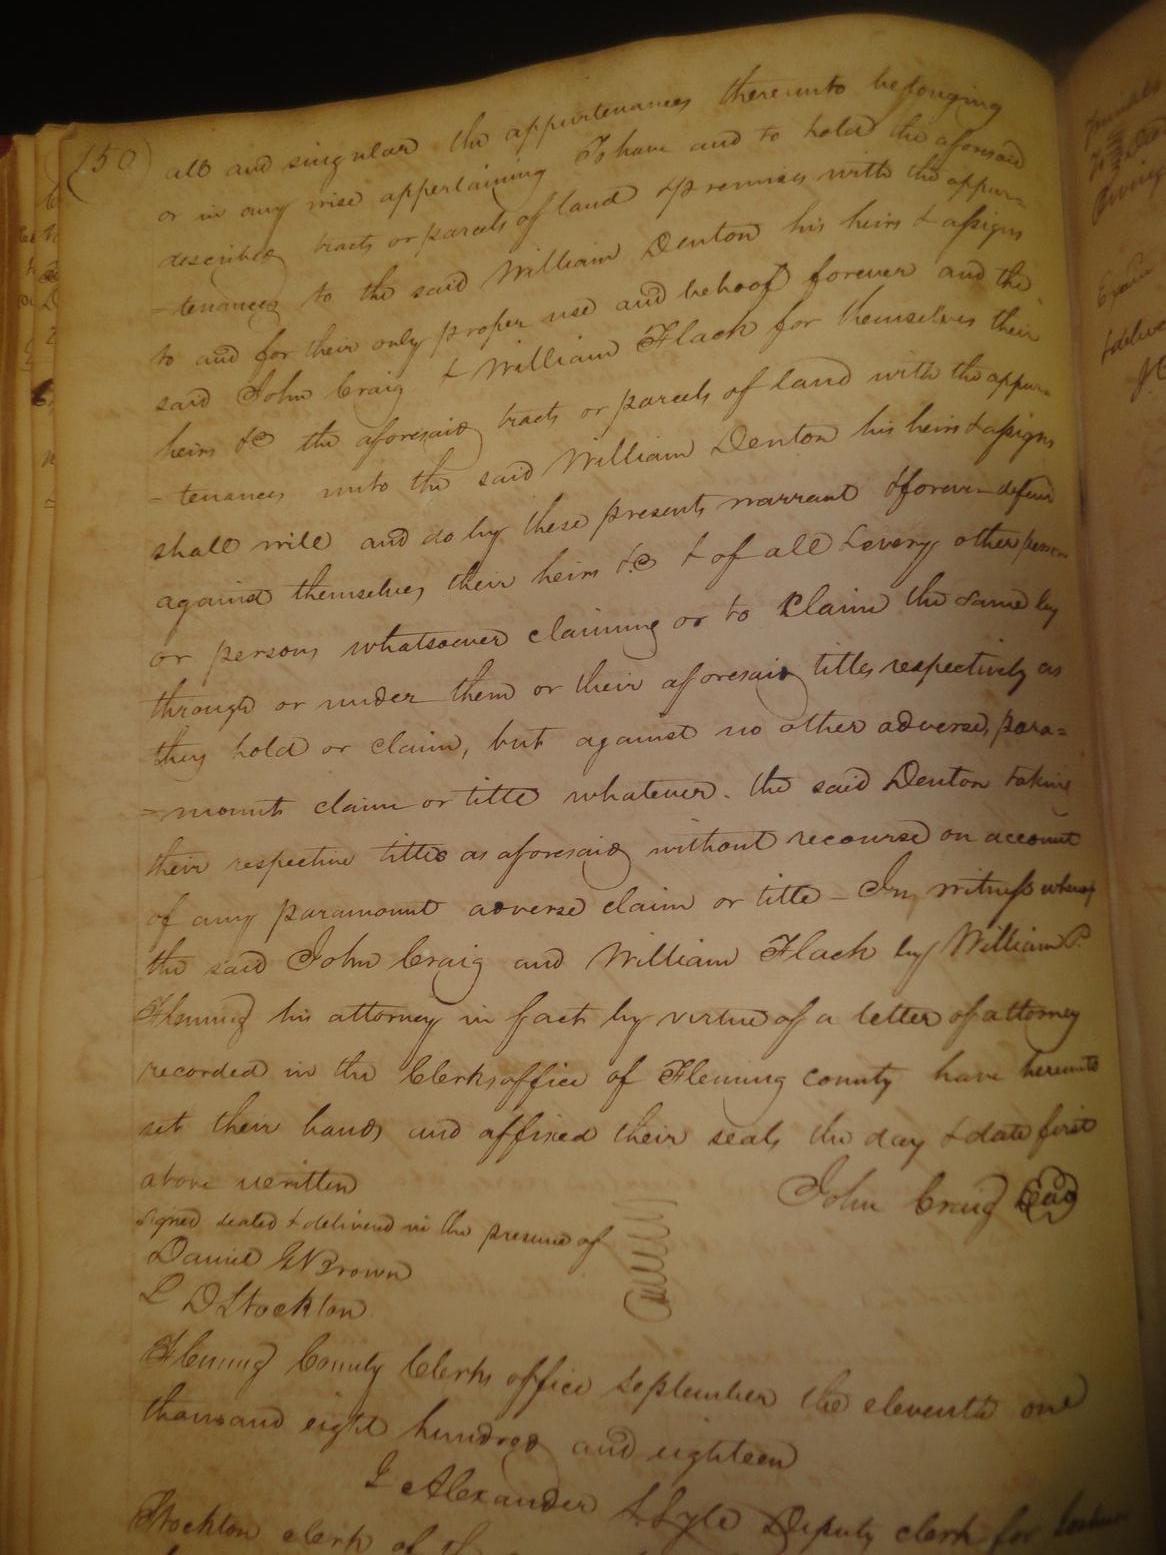 (150) all and singular the appurtenances thereunto belonging
or in any wise appertaining To have and to hold the aforesaid
described tracts or parcels of land & premises with the appur=
=tenances to the said William Denton his heirs & assigns
to and for their only proper use and behoof forever and the
said John Craig & William Flack for themselves their
heirs &c the aforesaid tracts or parcels of land with the appur=
=tenances unto the said William Denton his heirs & assigns
shall will and do by these presents warrant & forever defend
against themselves their heirs &c & of all & every other person
or persons whatsoever claiming or to claim the same by
through or under them or their aforesaid titles respectively as
they hold or claim, but against no other adverse, para=
=mount claim or title whatever. the said Denton taking
their respective titles as aforesaid without recourse on account
of any paramount adverse claim or title - In witness whereof
the said John Craig and William Flack by William P.
Fleming his attorney in fact by virtue of a letter of attorney
recorded in the Clerks office of Fleming county have hereunto
set their hands and affixed their seals the day & date first
above written
John Craig Seal
signed sealed & delivered in the presence of
Daniel G W Brown
L D Stockton
Fleming County Clerks office September the eleventh one
thousand eight hundred and eighteen
I Alexander S Lyle Deputy clerk for
Stockton clerk of